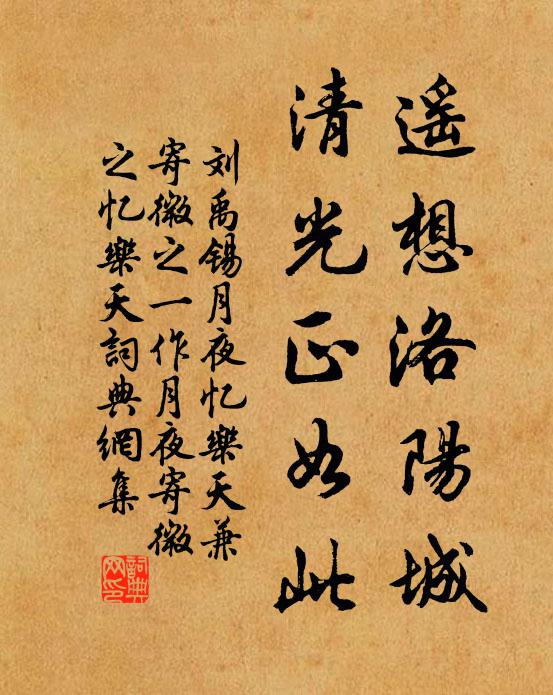 遥想洛陽城
清光正如此
刘禹锡月夜忆樂天兼
寄微之一作月夜寄微
之忆樂天詞典網集
詞典
网印